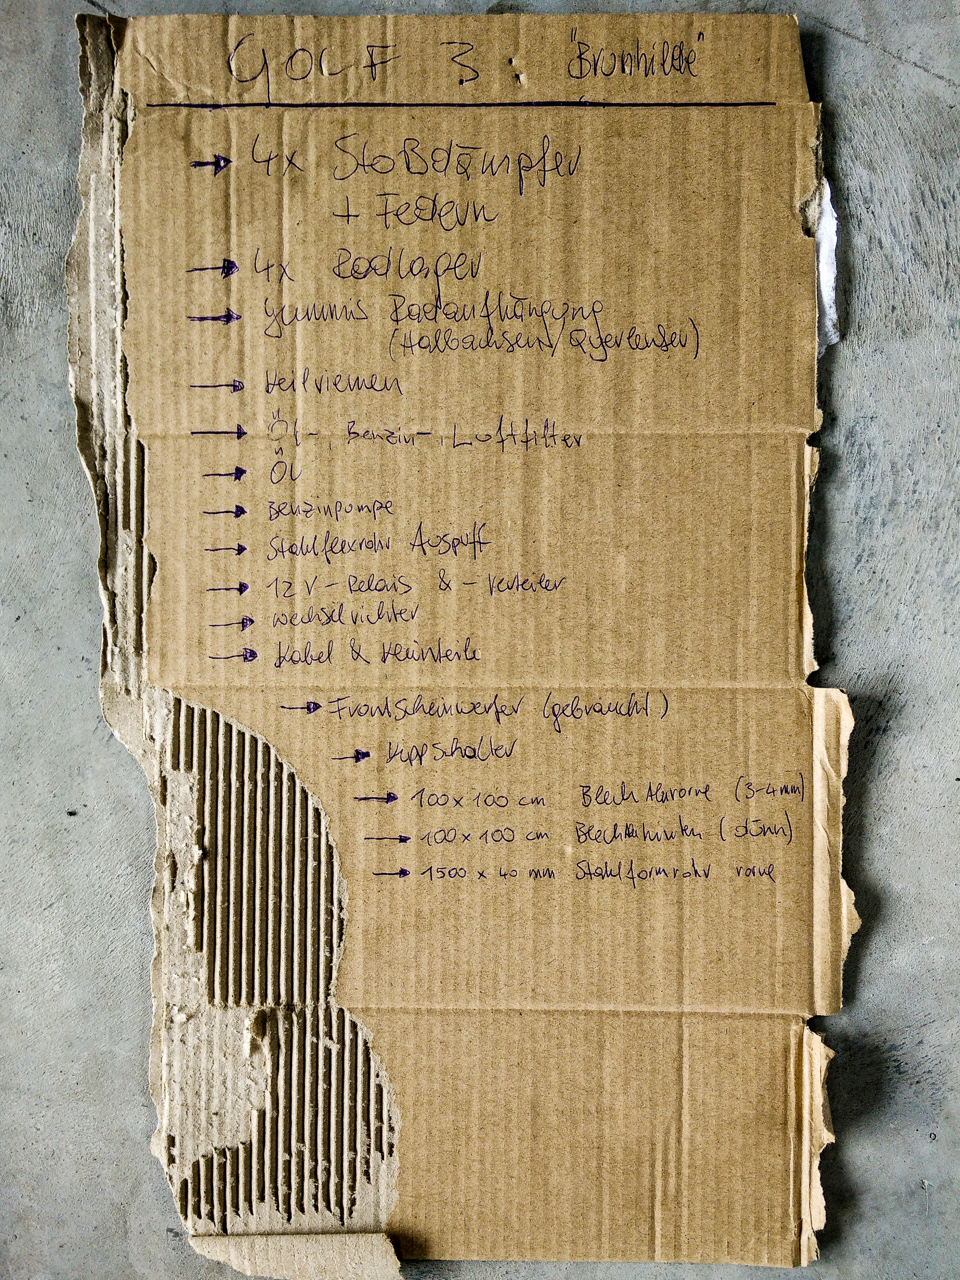 GOLF 3: "Brunhilde"
→ 4x Stoßdämpfer
+ Federn
→ 4x Radlager
→ Gummis Radaufhängung
(Halbachsen/Querlenker)
→ Keilriemen
→ Öl-, Benzin-, Luftfilter
→ Öl
→ Benzinpumpe
→ Stahlflexrohr Auspuff
→ 12 V - Relais & - Verteiler
→ Wechselrichter
→ Kabel & Kleinteile
→ Frontscheinwerfer (gebraucht)
→ Kippschalter
→ 100 x 100 cm Blech vorne (3-4 mm)
→ 100 x 100 cm Blech hinten (dünn)
→ 1500 x 40 mm Stahlformrohr vorne